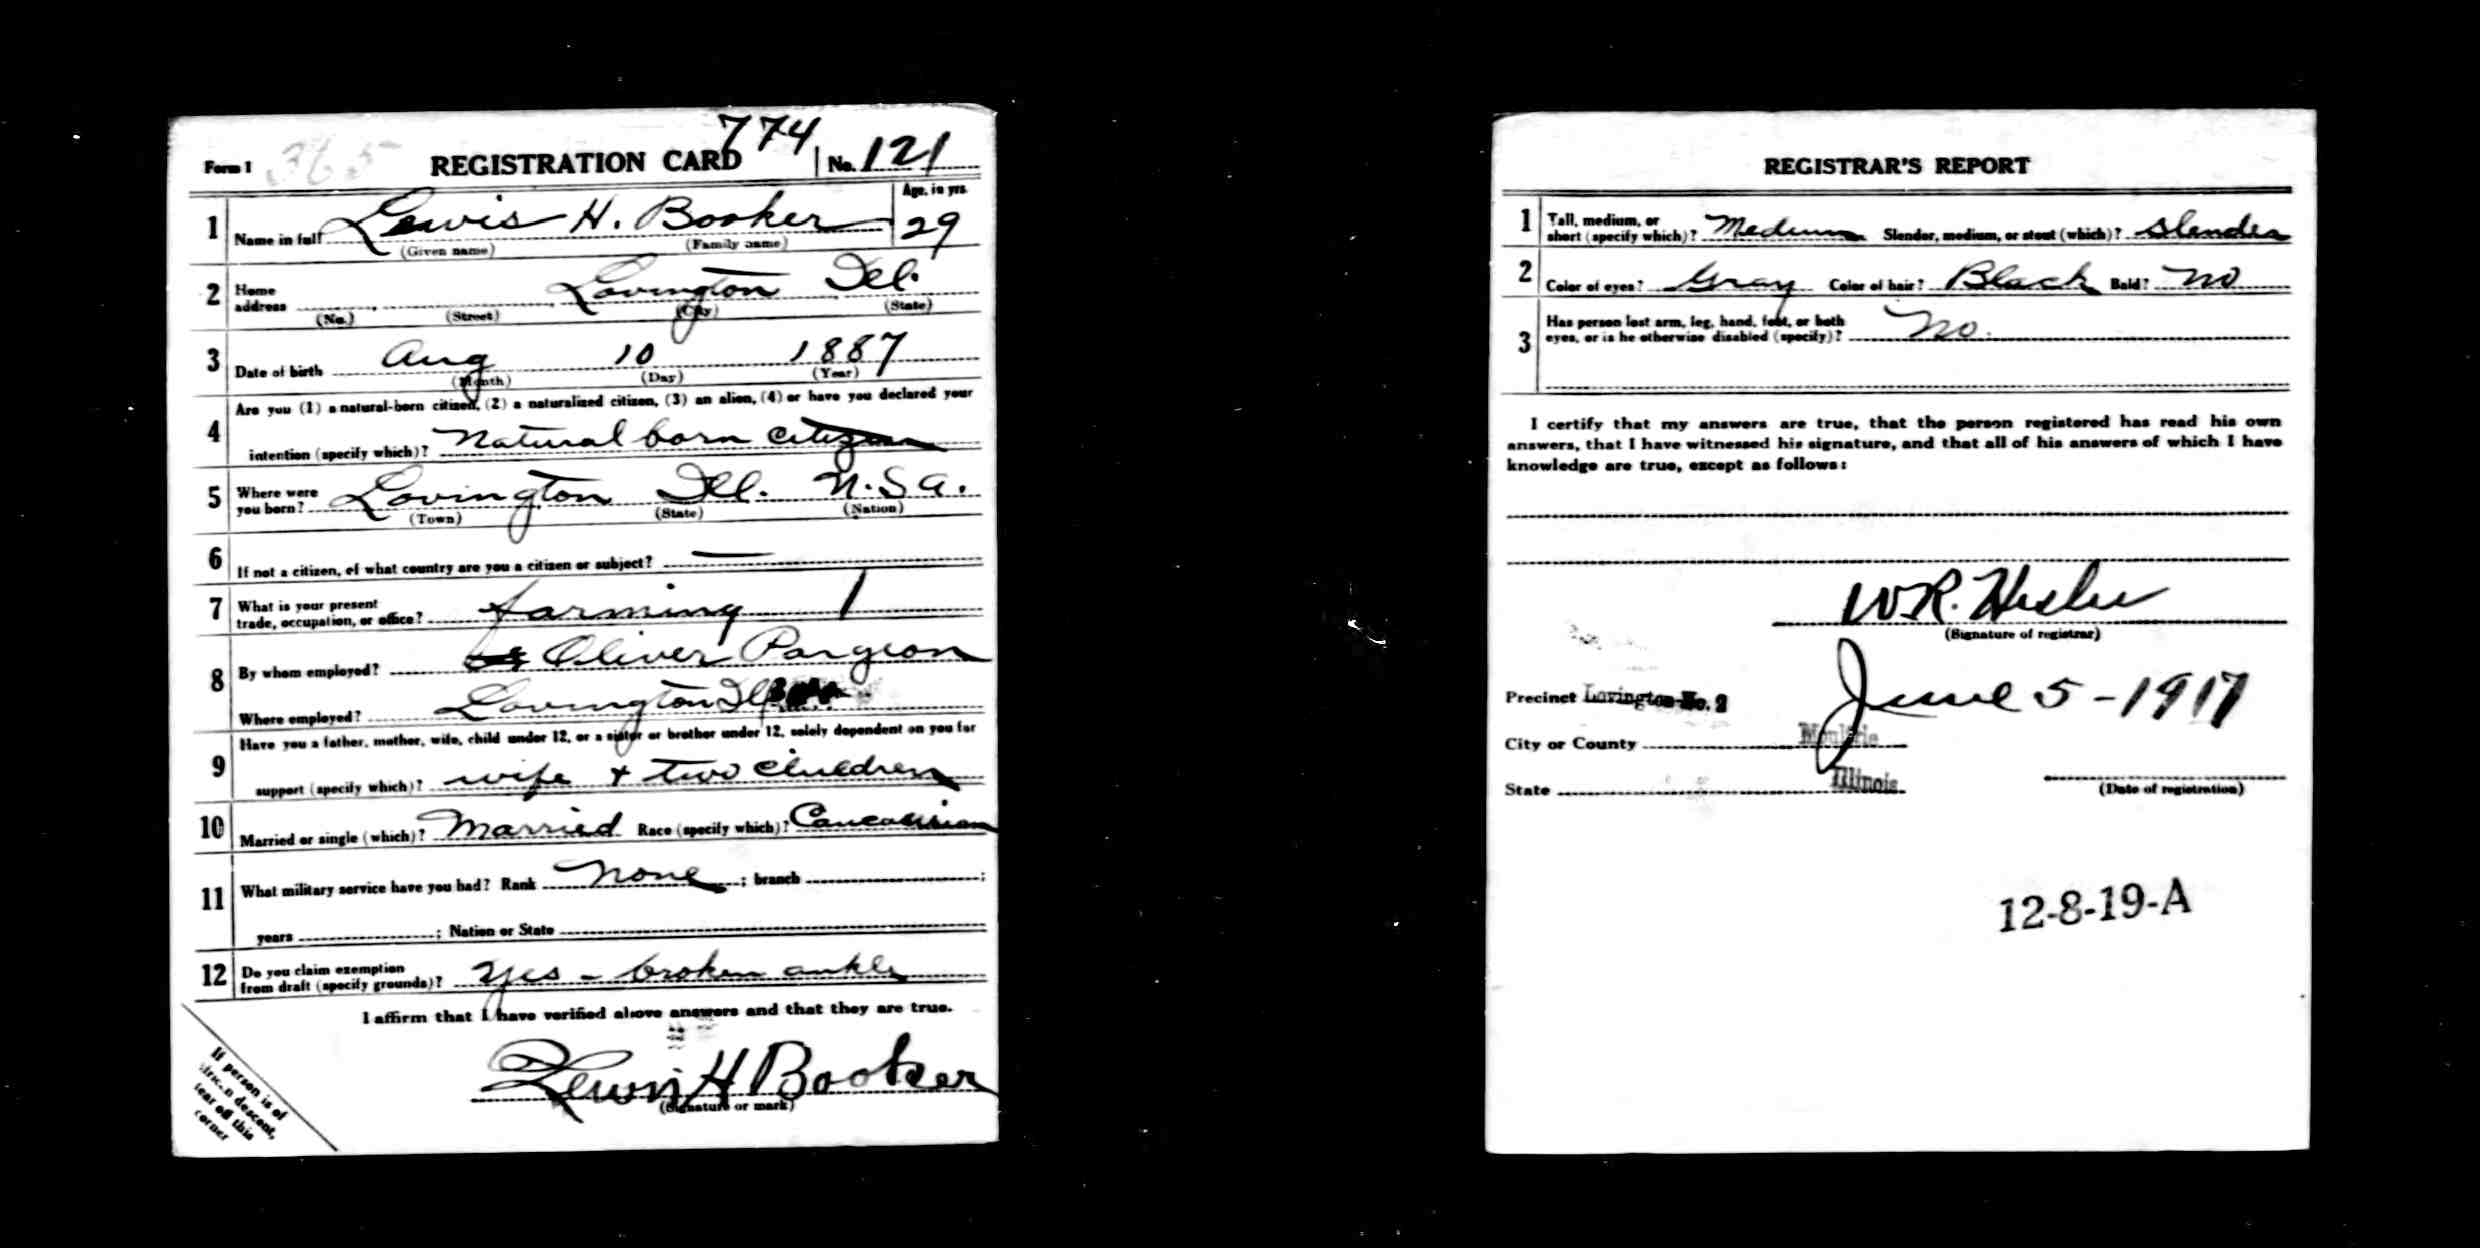 774
Form 1 365 REGISTRATION CARD No. 121
Age, in yrs.
1 Name in full Lewis H. Booker 29
(Given name) (Family name)
2 Home address Lovington Ill.
(No.) (Street) (City) (State)
3 Date of birth Aug 10 1887
(Month) (Day) (Year)
Are you (1) a natural-born citizen, (2) a naturalized citizen, (3) an alien, (4) or have you declared your
4 intention (specify which)? Natural born citizen
5 Where were you born? Lovington Ill. U.S.a.
(Town) (State) (Nation)
6 If not a citizen, of what country are you a citizen or subject? —
7 What is your present trade, occupation, or office? farming 1
8 By whom employed? Oliver Pargeon
Where employed? Lovington Ill
Have you a father, mother, wife, child under 12, or a sister or brother under 12, solely dependent on you for
9 support (specify which)? wife + two children
10 Married or single (which)? Married Race (specify which)? Caucasian
11 What military service have you had? Rank None ; branch ;
years ; Nation or State
12 Do you claim exemption from draft (specify grounds)? Yes - broken ankle
I affirm that I have verified above answers and that they are true.
Lewis H Booker
(Signature or mark)
If person is of
African descent,
tear off this
corner
REGISTRAR'S REPORT
1 Tall, medium, or short (specify which)? Medium Slender, medium, or stout (which)? Slender
2 Color of eyes? Gray Color of hair? Black Bald? No
3 Has person lost arm, leg, hand, foot, or both eyes, or is he otherwise disabled (specify)? No.
I certify that my answers are true, that the person registered has read his own
answers, that I have witnessed his signature, and that all of his answers of which I have
knowledge are true, except as follows:
W.R.
(Signature of registrar)
Precinct Lovington No. 2 June 5 - 1917
City or County Moultrie
State Illinois
(Date of registration)
12-8-19-A